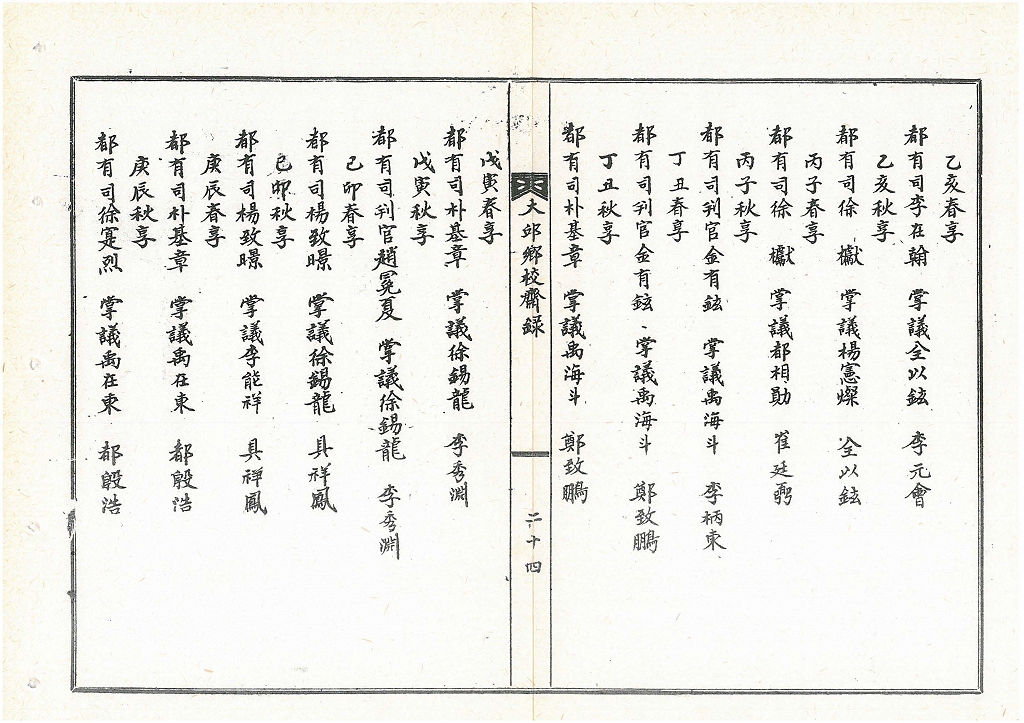 乙亥春享
都有司李在翰 掌議全以鉉 李元會
乙亥秋享
都有司徐𤩱 掌議楊憲燦 全以鉉
丙子春享
都有司徐 掌議都相勛 崔廷弼
丙子秋享
都有司判官金有鉉 掌議禹海斗 李柄東
丁丑春享
都有司判官金有鉉 掌議禹海斗 鄭致鵬
丁丑秋享
都有司朴基章 掌議禹海斗 鄭致鵬
大邱鄉校齋錄
二十四
戊寅春享
都有司朴基章 掌議徐錫龍 李秀淵
戊寅秋享
都有司判官趙冕夏 掌議徐錫龍 李秀淵
己卯春享
都有司楊致暻 掌議徐錫龍 具祥鳳
己卯秋享
都有司楊致暻 掌議李能祥 具祥鳳
庚辰春享
都有司朴基章 掌議禹在東 都殷浩
庚辰秋享
都有司徐寔烈 掌議禹在東 都殷浩